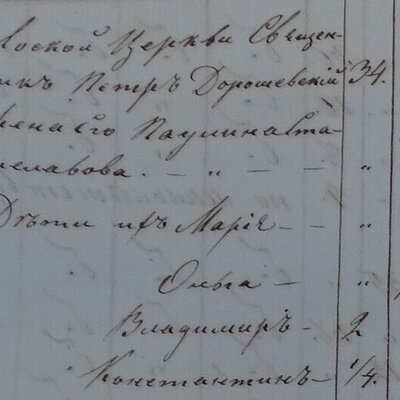 вской Церкви Священ-
икъ Петръ Дорошевскій 34.
жена Его Паулина Ста-
ниславова. - " - - "
Дѣти ихъ Марія - - "
Ольга - "
Владиміръ - 2
Константинъ - 1/4.